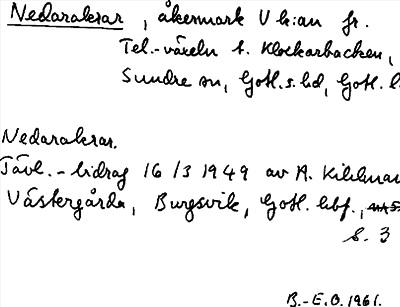 Nedarakrar, åkermark V k:an fr.
Tel.-växeln t. Klockarbacken,
Sundre sn, Gotl. s. hd, Gotl. l.
Nedarakrar.
Tävl.-bidrag 16/3 1949 av A. Kihlman
Västergårda, Burgsvik, Gotl. lbf.,
s. 3
B.-E.O. 1961.